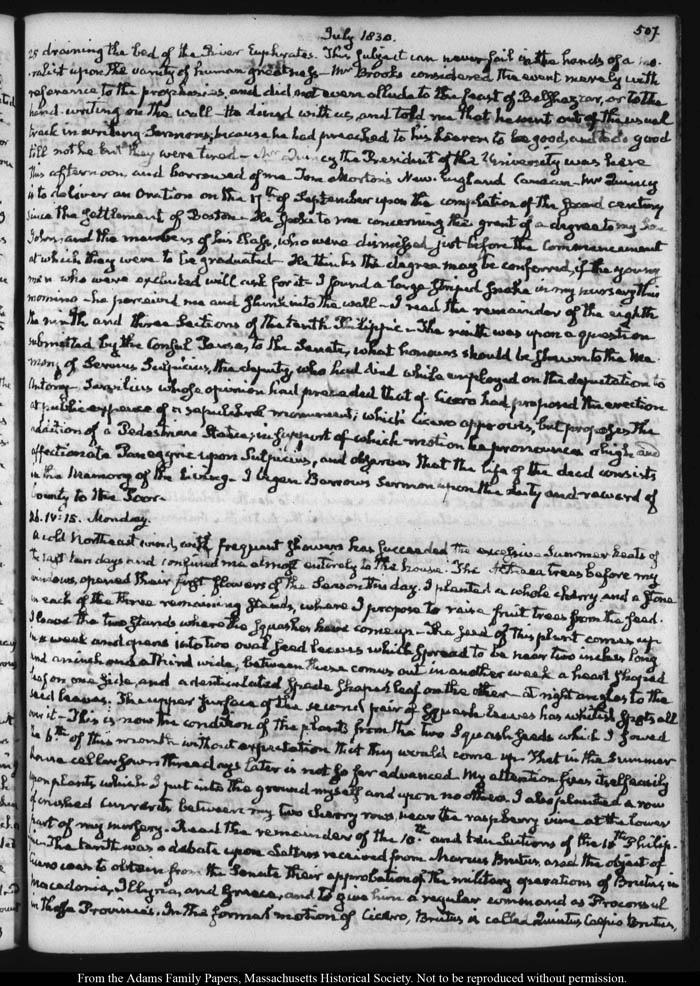 July 1830.
507
as draining the bed of the River Euphrates. This subject can never fail in the hands of a mo-
ralist upon the vanity of human greatness — Mr Brooks considered the event merely with
reference to the prophecies, and did not even allude to the feast of Belshazzar, or to the
hand-writing on the wall — He dined with us, and told me that he went out of the usual
track in writing Sermons, because he had preached to his hearers to be good, and to do good
till not he but they were tired — Mr Quincy the President of the University was here
this afternoon, and borrowed of me Tom Morton's New England Canaan — Mr Quincy
is to deliver an Oration on the 17th of September upon the completion of the second century
since the settlement of Boston — He spoke to me concerning the grant of a degree to my Son
John, and the members of his Class, who were dismissed just before the Commencement
at which they were to be graduated — He thinks the degree may be conferred, if the young
men who were excluded will ask for it — I found a large striped snake in my nursery this
morning — he perceived me and slunk into the wall — I read the remainder of the eighth
the ninth and three Sections of the tenth Philippic — The ninth was upon a question
submitted by the Consul Pansa, to the Senate, what honours should be shewn to the Me-
mory of Servius Sulpicius, the deputy who had died while employed on the deputation to
Antony — Servilius whose opinion had preceded that of Cicero had proposed the erection
at public expence of a sepulchral monument; which Cicero approves, but proposes the
addition of a Pedestrian Statue; in support of which motion he pronounces a high and
affectionate Panegyric upon Sulpicius, and observes that the life of the dead consists
in the Memory of the living — I began Barrows Sermon upon the duty and reward of
bounty to the Poor —
26. IV: 15. Monday.
A cold Northeast wind, with frequent showers has succeeded the excessive Summer heats of
the last ten days and confined me almost entirely to the house. The Althaea trees before my
windows, opened their first flowers of the Season this day. I planted a whole cherry and a stone
in each of the three remaining stands, where I propose to raise fruit trees from the seed.
I leave the two stands where the Squashes have come up — The seed of this plant comes up
in a week and opens into two oval seed leaves which spread to be near two inches long
and an inch and a third wide, between these comes out in another week a heart shaped
leaf on one side, and a denticulated spade shaped leaf on the other — at right angles to the
seed leaves. The upper surface of the second pair of Squash leaves has whitish spots all
over it — This is now the condition of the plants from the two Squash seeds which I sowed
the 6th of this month without expectation that they would come up. That in the Summer
house cellar sown three days later is not so far advanced. My attention fixes itself easily
upon plants which I put into the ground myself and upon no others. I also planted a row
of crushed currants between my two cherry rows, near the raspberry vine at the lower
part of my nursery. I read the remainder of the 10th and two Sections of the 11th Philip-
pic. The tenth was a debate upon Letters received from Marcus Brutus, and the object of
Cicero was to obtain from the Senate their approbation of the military operations of Brutus, in
Macedonia, Illyria, and Greece, and to give him a regular command as Proconsul
in those Provinces. In the formal motion of Cicero, Brutus is called Quintus Caepio Brutus,
From the Adams Family Papers, Massachusetts Historical Society. Not to be reproduced without permission.